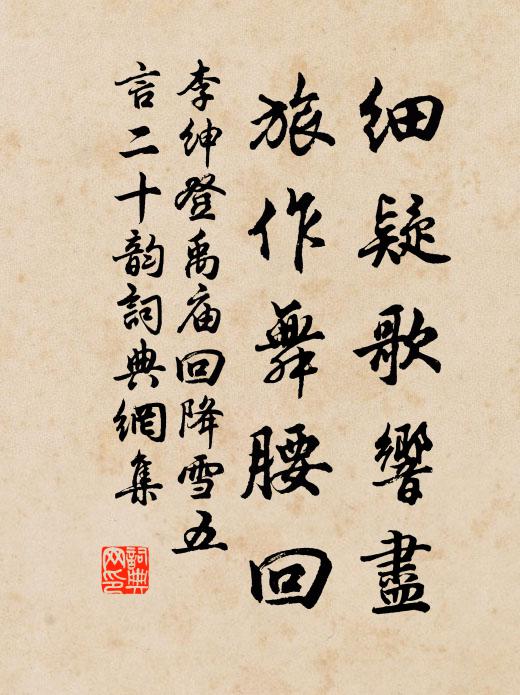 細疑歌響盡
旅作舞腰回
李紳登禹庙回降雪五
言二十韵詞典網集
詞典
网印